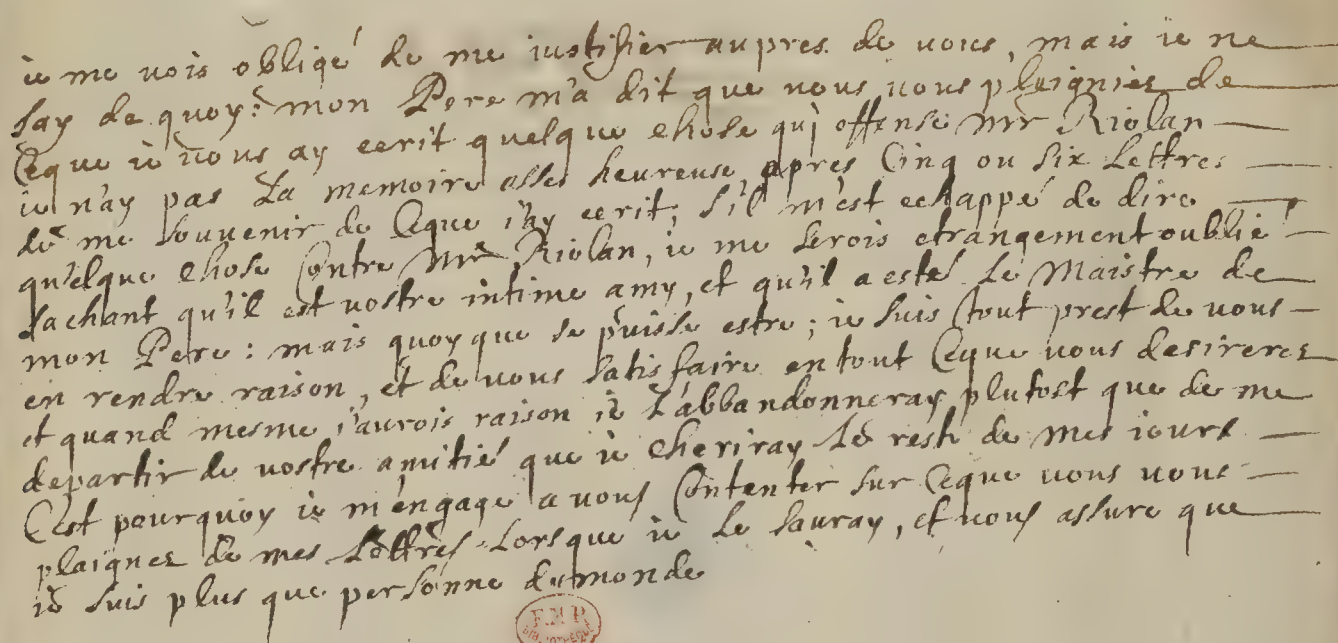 ie me vois obligé de me iustifier aupres de vous, mais ie ne
say de quoy: mon Pere m'a dit que vous vous plaigniez de
Ceque ie vous ay ecrit quelque chose qui offense Mr Riolan
ie n'ay pas La memoire asses heureuse apres Cinq ou six Lettres
de me souvenir de Ceque i'ay ecrit; s'il m'est echappé de dire
quelque chose Contre Mr Riolan, ie me serois etrangement oublié
sachant qu'il est vostre intime amy, et qu'il a esté Le Maistre de
mon Pere: mais quoyque se puisse estre; ie suis tout prest de vous
en rendre raison, et de vous satisfaire en tout Ceque vous desirerez
et quand mesme i'aurois raison ie L'abbandonneray plutost que de me
departir de vostre amitié que ie cheriray Le reste de mes iours
C'est pourquoy ie m'engage a vous Contenter sur Ceque vous vous
plaignez de mes Lettres Lorsque ie Le sauray, et vous assure que
ie suis plus que personne du monde
F.M.P.
BIBLIOTHEQUE